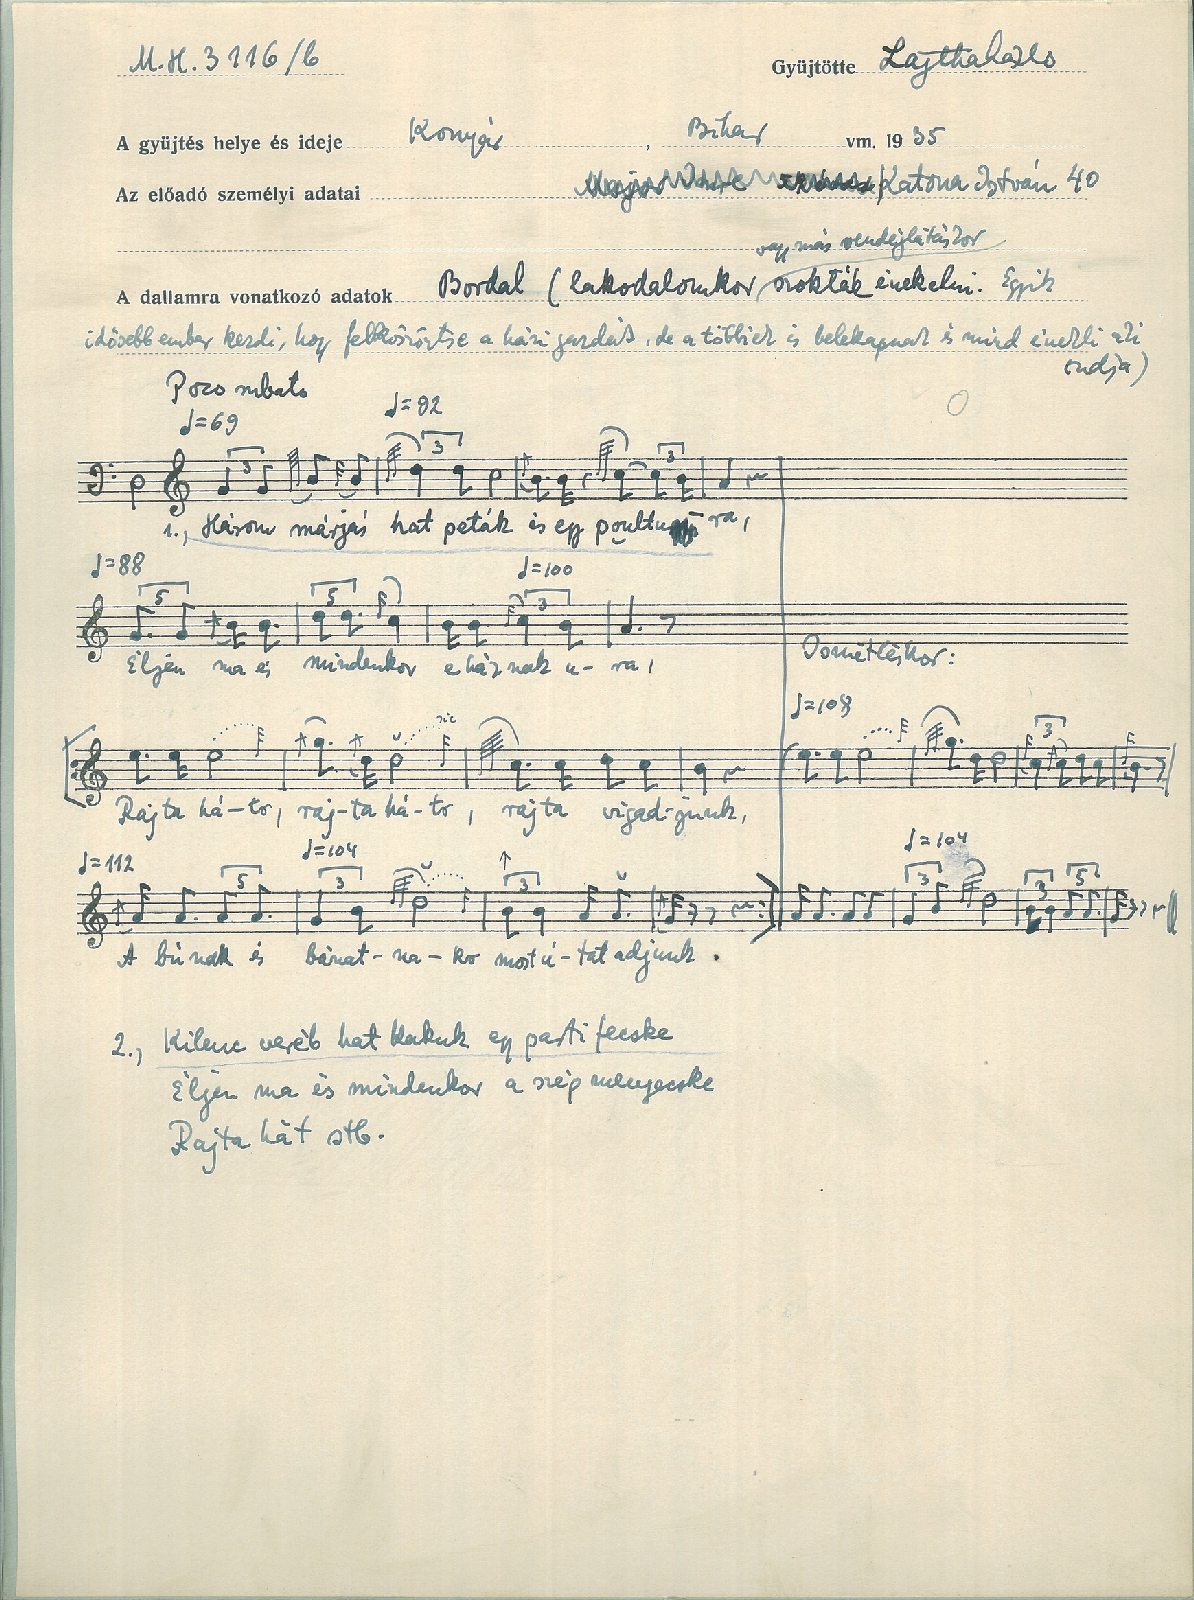 M.H. 3116/b
Gyüjtötte Lajtha László
A gyüjtés helye és ideje Konyár, Bihar vm. 1935
Az előadó személyi adatai Katona István 40
vagy más vendéglátáskor
A dallamra vonatkozó adatok Bordal (lakodalomkor szokták énekelni. Egyik
idősebb ember kezdi, hogy felköszöntse a házi gazdát, de a többiek is belekapnak és mind énekli aki
tudja)
Poco rubato
♩=69 ♩=82
3 3 3
1., Három márjás hat peták és egy poultura,
♩=88 ♩=100
5 5 3
Éljen ma és mindenkor e háznak u-ra,
Ismétléskor:
♩=108
sic
3
Rajta há-tr, raj-ta há-tr, rajta vigad-junk,
♩=112 ♩=104 ♩=104
5 3 3 3 3 5
A búnak és bánat-na-kr most ú-tat adjunk.
2., Kilenc veréb hat kakuk egy parti fecske
Éljen ma és mindenkor a szép menyecske
Rajta hát stb.